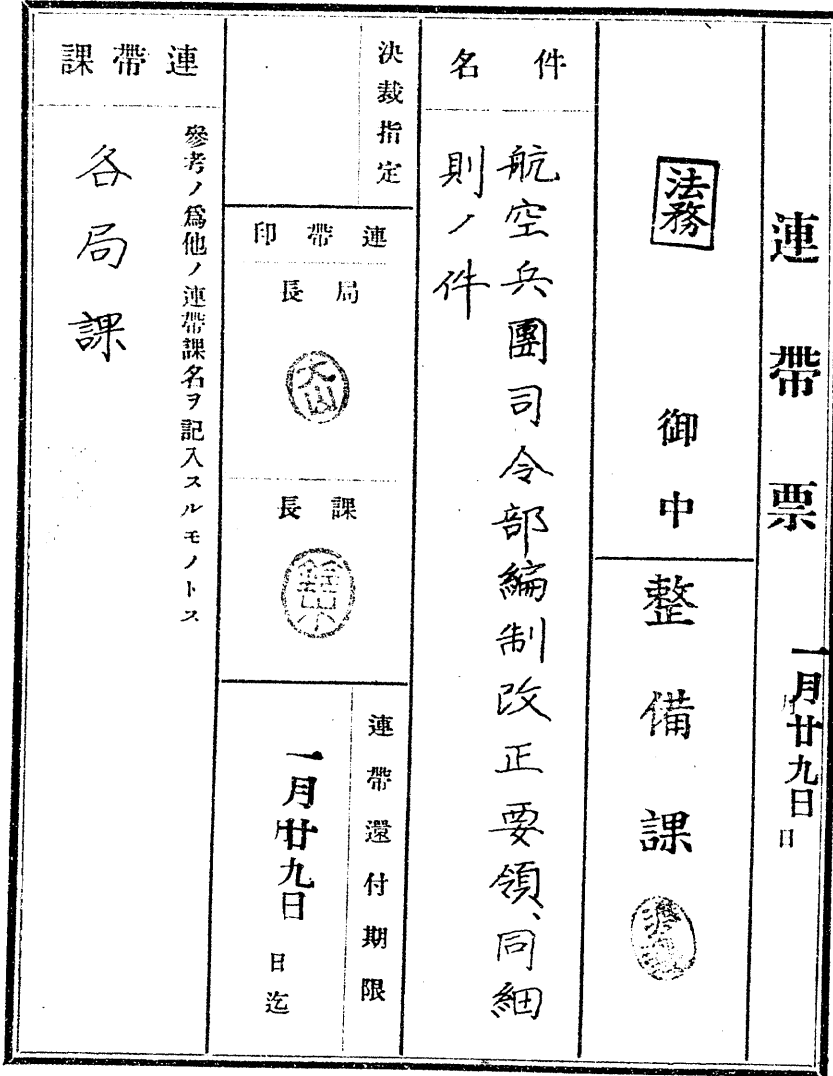 連帶票
一月廿九日
月
日
法務
御中
整備課
件名
航空兵團司令部編制改正要領、同細
則ノ件
決裁指定
連帶印
局長
課長
連帶還付期限
一月廿九日
月
日迄
連帶課
參考ノ爲他ノ連帶課名ヲ記入スルモノトス
各局課